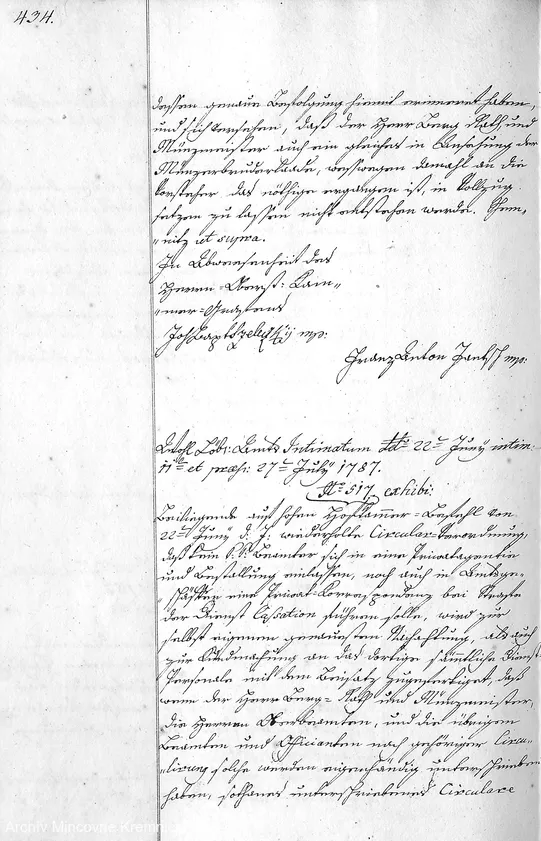 434.
dessen genaue Befolgung hiemit erinneret haben,
und sich versehen, daß der Herr Berg Rath, und
Münzmeister auch ein gleiches in Ansehung der
Münzerbruderlaade, wesswegen damahl an die
Vorsteher das nöthige ergangen ist, in Vollzug
setzen zu lassen nicht entstehen werde. Chem„
„nitz ut supra.
In Abwesenheit des
Herrn Oberst: Cam„
„mer-Grafens
Franz Anton mp:
Wohl Löb: Amts Intimatum ddo 22ten Juny intim:
11ten et præs: 27ten July 1787.
No 517 exhibi:
Beiliegende aus hohen Hofkammer-Befehl von
22ten Juny d. J: wiederhollte Circular-Verordnung,
daß kein K: K: Beamter sich in eine Privatagentie
und Bestallung einlassen, noch auch in Amtsge„
„schäften eine Privat-Correspondenz bei Strafe
der Dienst Cassation führen solle, wird zur
selbst eigenen genauesten Nachachtung, als auch
zur Kundmachung an das dortige sämtliche Dienst
Personale mit dem Beisatz zugefertiget, daß
wenn der Herr Berg-Rath und Münzmeister,
die Herren Oberbeamten, und die übrigen
Beamten und Officianten nach gehöriger Circu„
„lirung solche werden eigenhändig unterschrieben
haben, sothanes unterschriebenes Circulare
Archív Mincovne Kremnica